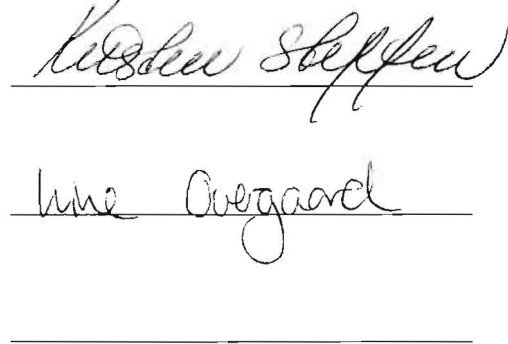 Kirsten Steffen
Line Overgaard